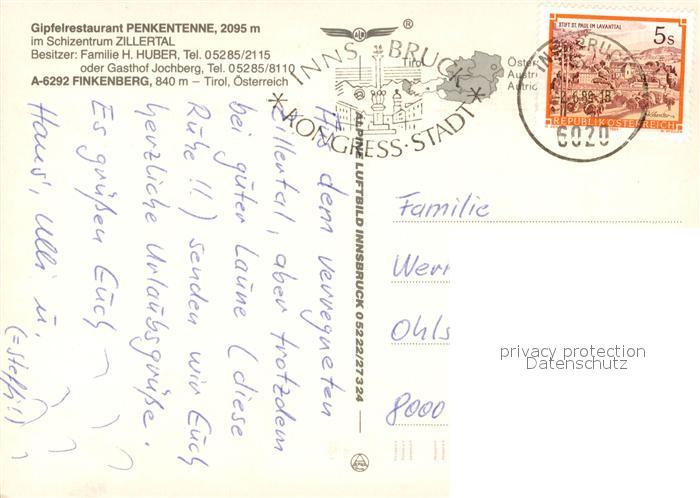 Gipfelrestaurant PENKENTENNE, 2095 m
im Schizentrum ZILLERTAL
Besitzer: Familie H. HUBER, Tel. 05285/2115
oder Gasthof Jochberg, Tel. 05285/8110
A-6292 FINKENBERG, 840 m – Tirol, Österreich
ALR
®
INNSBRUCK
*KONGRESS·STADT*
Tirol
Öster
Austri
Autric
STIFT ST. PAUL IM LAVANTTAL
5s
REPUBLIK ÖSTERREICH
6020
ALPINE LUFTBILD INNSBRUCK 05222/27324
Aus dem verregneten
Zillertal, aber trotzdem
bei guter Laune (diese
Ruhe!!) senden wir Euch
herzliche Urlaubsgrüße.
Es grüßen Euch
Hans, Ulli u.
(=Steffi!)
Familie
Wern
Ohls
8000
privacy protection
Datenschutz